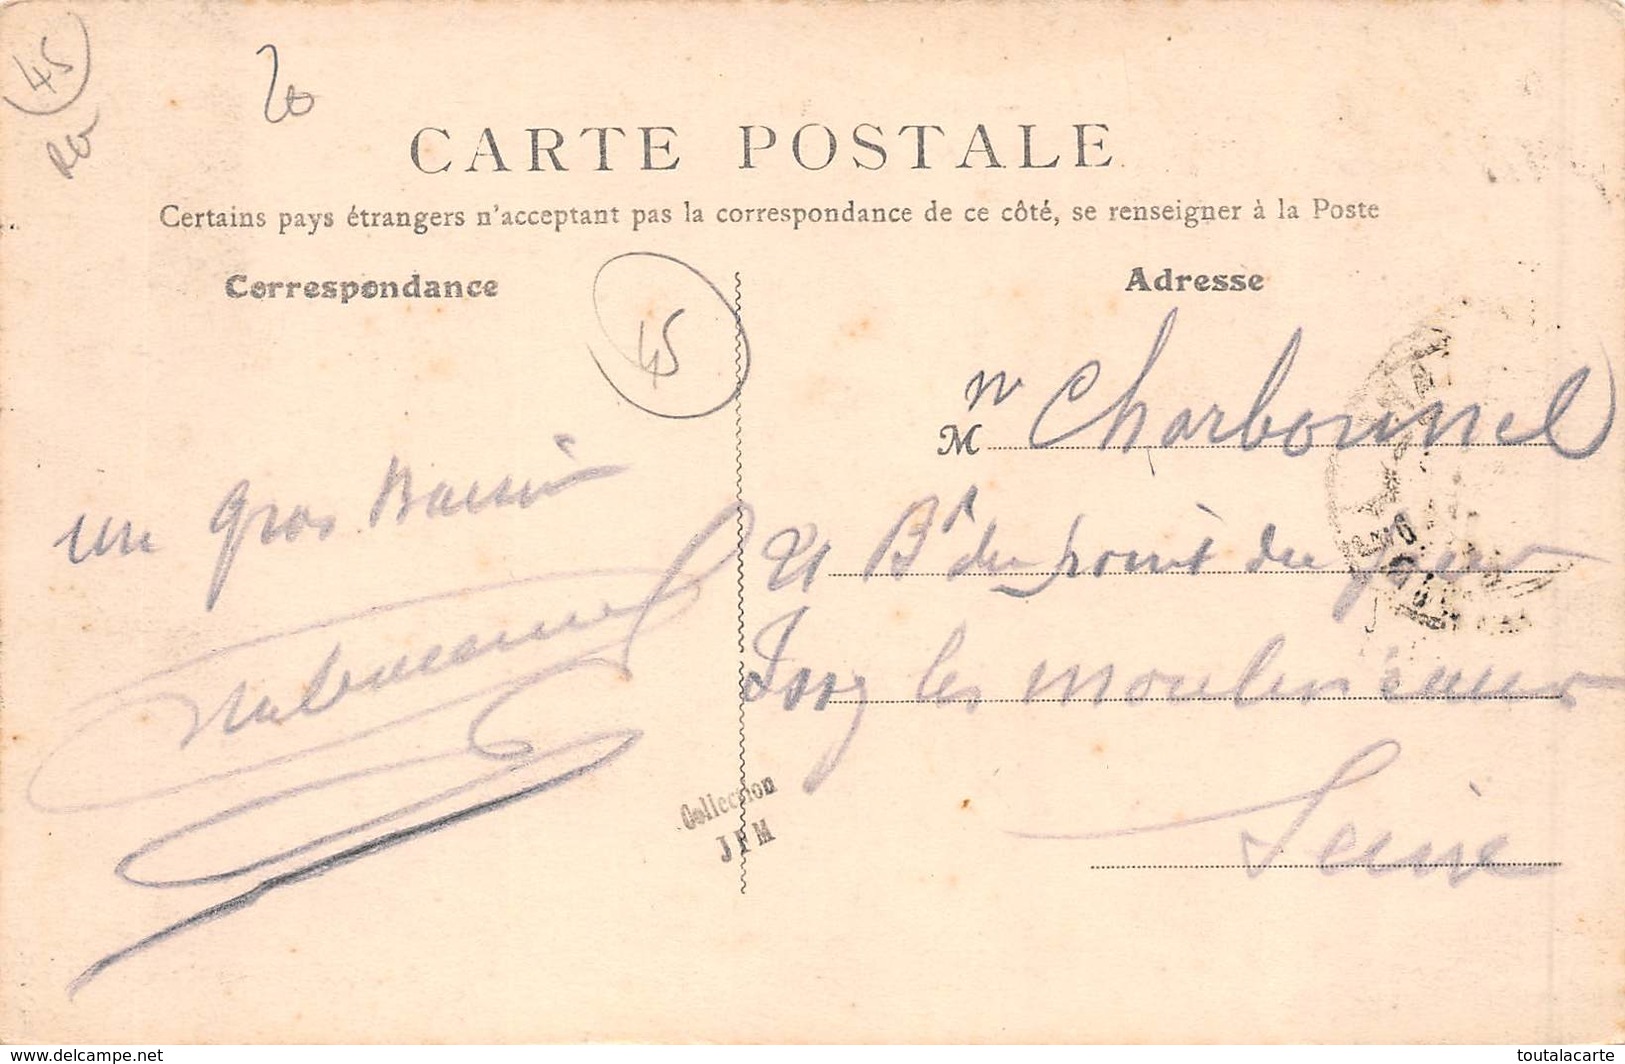 45
20
CARTE POSTALE
Certains pays étrangers n'acceptant pas la correspondance de ce côté, se renseigner à la Poste
Correspondance
Adresse
45
M Charbonnel
un gros
21 Bd du point du jour
Issy les moulineaux
Seine
Collection
www.delcampe.net
toutalacarte